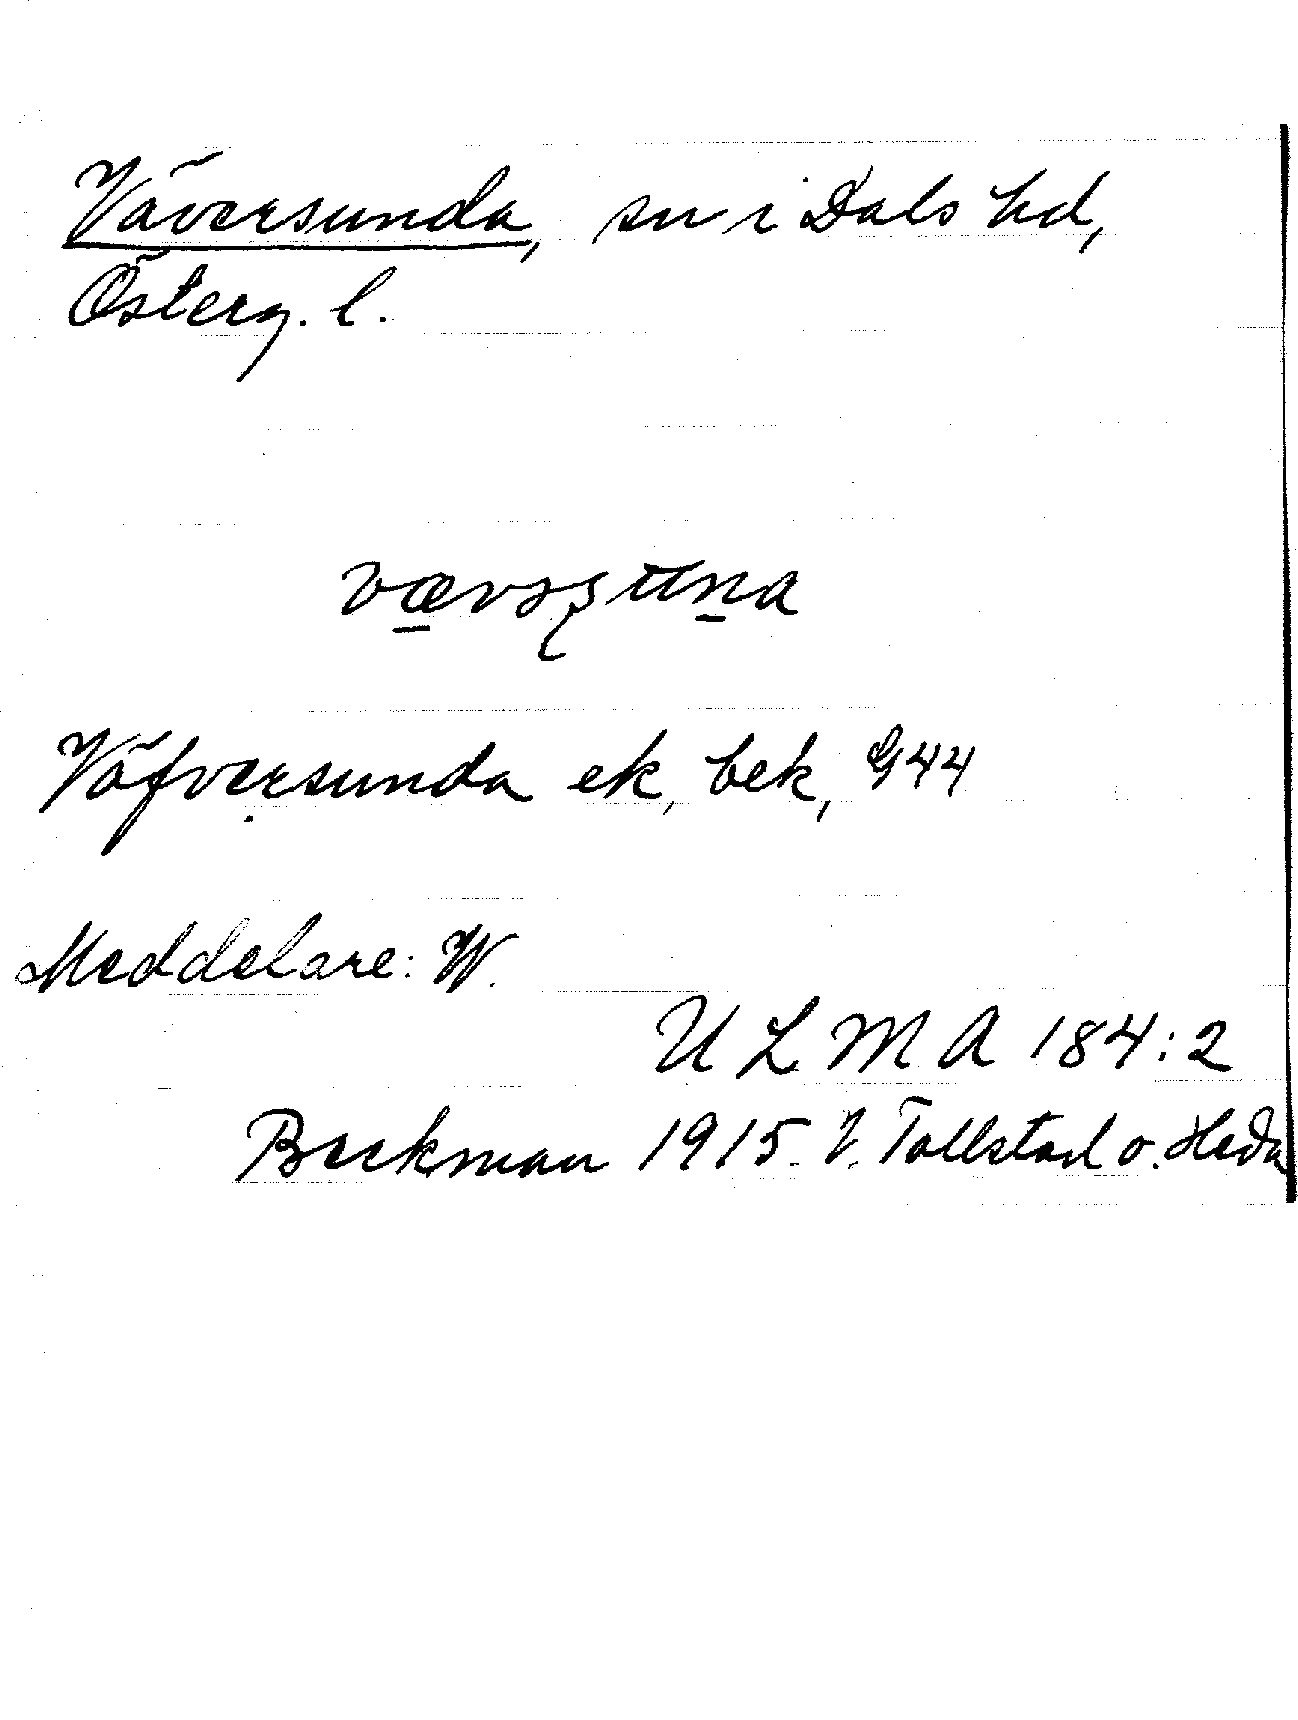 Väversunda, sn i Dals hd,
Österg. l.
Väfversunda ek, bek, G44
Meddelare: W.
ULMA 184:2
Beckman 1915. V. Tollstad o. Heda